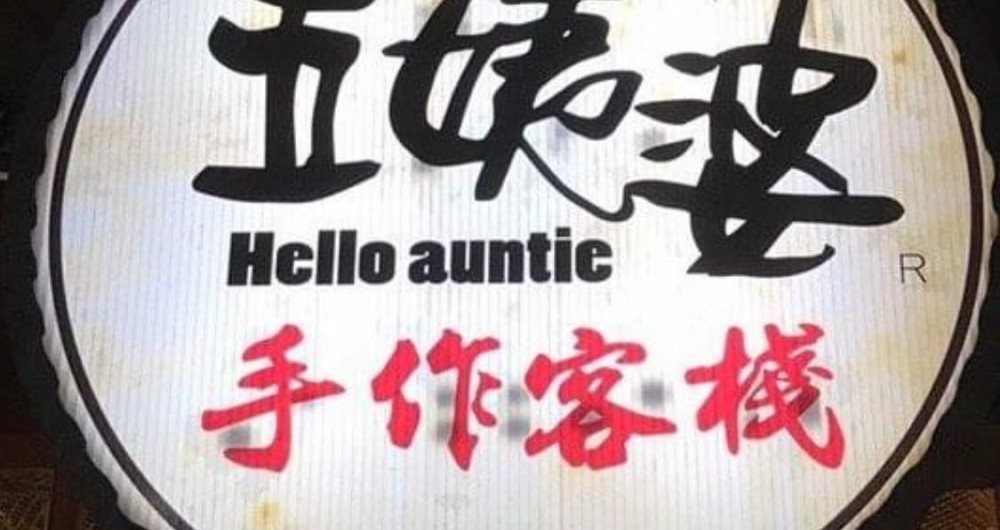 五姨婆
Hello auntie
R
手作客棧